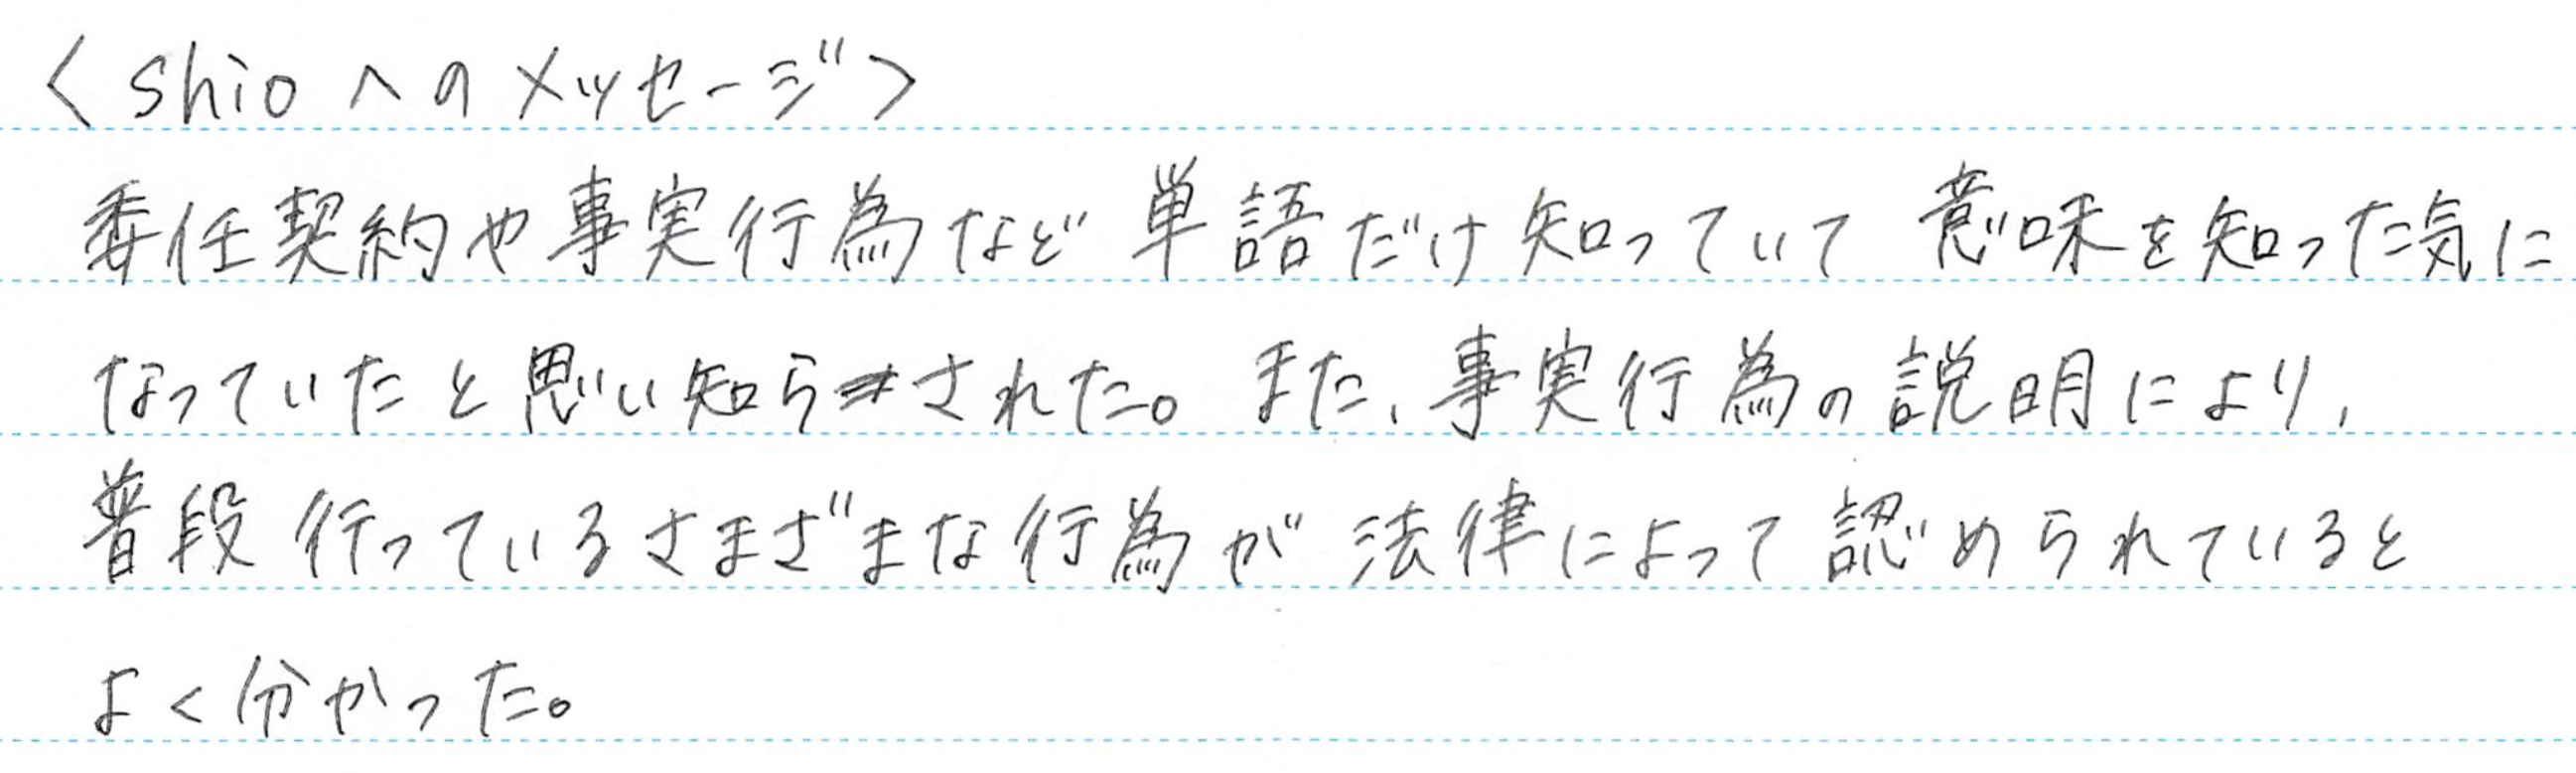 〈shioへのメッセージ〉
委任契約や事実行為など単語だけ知っていて意味を知った気に
なっていたと思い知らされた。また、事実行為の説明により、
普段行っているさまざまな行為が法律によって認められていると
よく分かった。